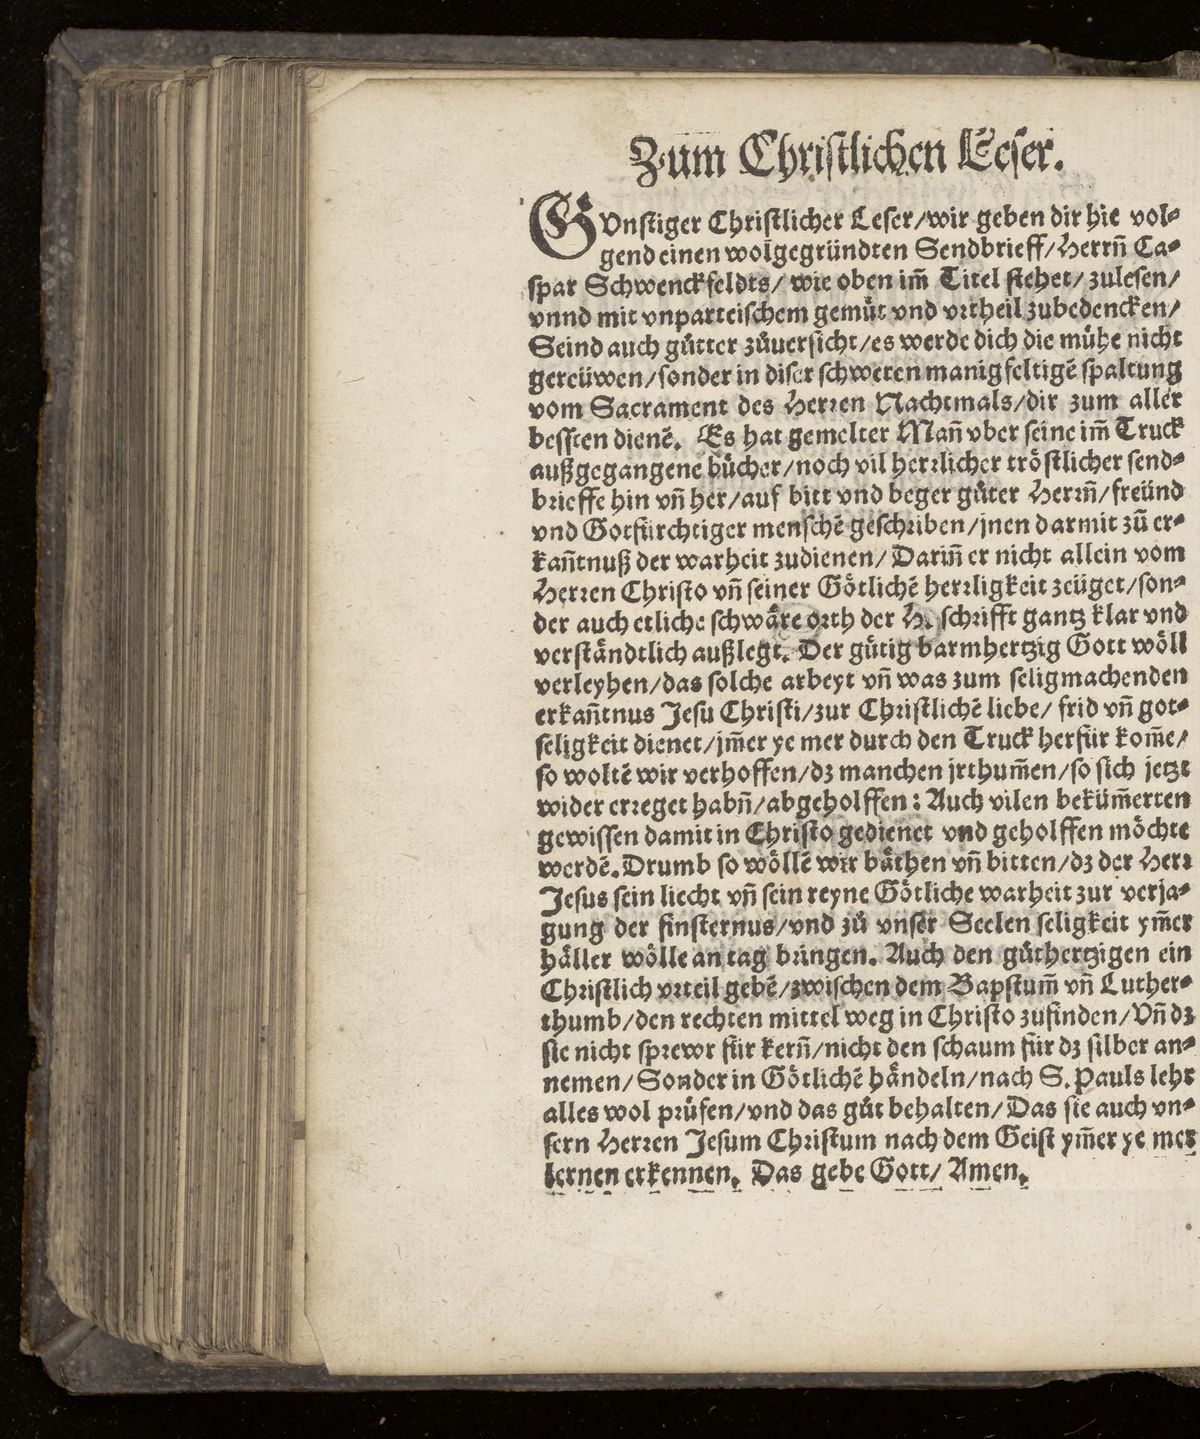 Zum Chriſtlichen Leſer.
GVnſtiger Chriſtlicher Leſer/wir geben dir hie vol⸗
gend einen wolgegründten Sendbrieff/Herrn̄ Ca⸗
ſpar Schwenckfeldts/ wie oben im̄ Titel ſtehet/ zuleſen/
vnnd mit vnparteiſchem gemuͤt vnd vꝛtheil zubedencken/
Seind auch guͤtter zůuerſicht/es werde dich die muͤhe nicht
gereüwen/ſonder in diſer ſchweren manigfeltigē ſpaltung
vom Sacrament des Herꝛen Nachtmals/dir zum aller
beſſten dienē. Es hat gemelter Man̄ vber ſeine im̄ Truck
außgegangene buͤcher/noch vil herꝛlicher troͤſtlicher ſend⸗
bꝛieffe hin vn̄ her/auf bitt vnd beger guͤter Herꝛn̄/freünd
vnd Gotfürchtiger menſchē geſchꝛiben/jnen darmit zů er⸗
kan̄tnuß der warheit zudienen/ Darin̄ er nicht allein vom
Herꝛen Chriſto vn̄ ſeiner Goͤtlichē herꝛligkeit zeüget/ſon⸗
der auch etliche ſchwaͤre oꝛth der H. ſchꝛifft gantz klar vnd
verſtaͤndtlich außlegt. Der guͤtig barmhertzig Gott woͤll
verleyhen/das ſolche arbeyt vn̄ was zum ſeligmachenden
erkan̄tnus Jeſu Chriſti/zur Chriſtlichē liebe/ frid vn̄ got⸗
ſeligkeit dienet/jm̄er ye mer durch den Truck herfür kom̄e/
ſo woltē wir verhoffen/dz manchen jrthum̄en/ſo ſich jetzt
wider erꝛeget habn̄/abgeholffen: Auch vilen beküm̄erten
gewiſſen damit in Chriſto gedienet vnd geholffen moͤchte
werdē. Drumb ſo woͤllē wir baͤthen vn̄ bitten/dz der Herꝛ
Jeſus ſein liecht vn̄ ſein reyne Goͤtliche warheit zur verja⸗
gung der finſternus/vnd zů vnſer Seelen ſeligkeit ym̄er
haͤller woͤlle an tag bꝛingen. Auch den guͤthertzigen ein
Chꝛiſtlich vꝛteil gebē/zwiſchen dem Bapſtum̄ vn̄ Luther⸗
thumb/den rechten mittel weg in Chriſto zufinden/Vn̄ dz
ſie nicht ſpꝛewr für kern̄/nicht den ſchaum für dz ſilber an⸗
nemen/ Sonder in Goͤtlichē haͤndeln/nach S. Pauls lehꝛ
alles wol pꝛuͤfen/vnd das guͤt behalten/ Das ſie auch vn⸗
ſern Herꝛen Jeſum Chriſtum nach dem Geiſt ym̄er ye mer
lernen erkennen. Das gebe Gott/ Amen.